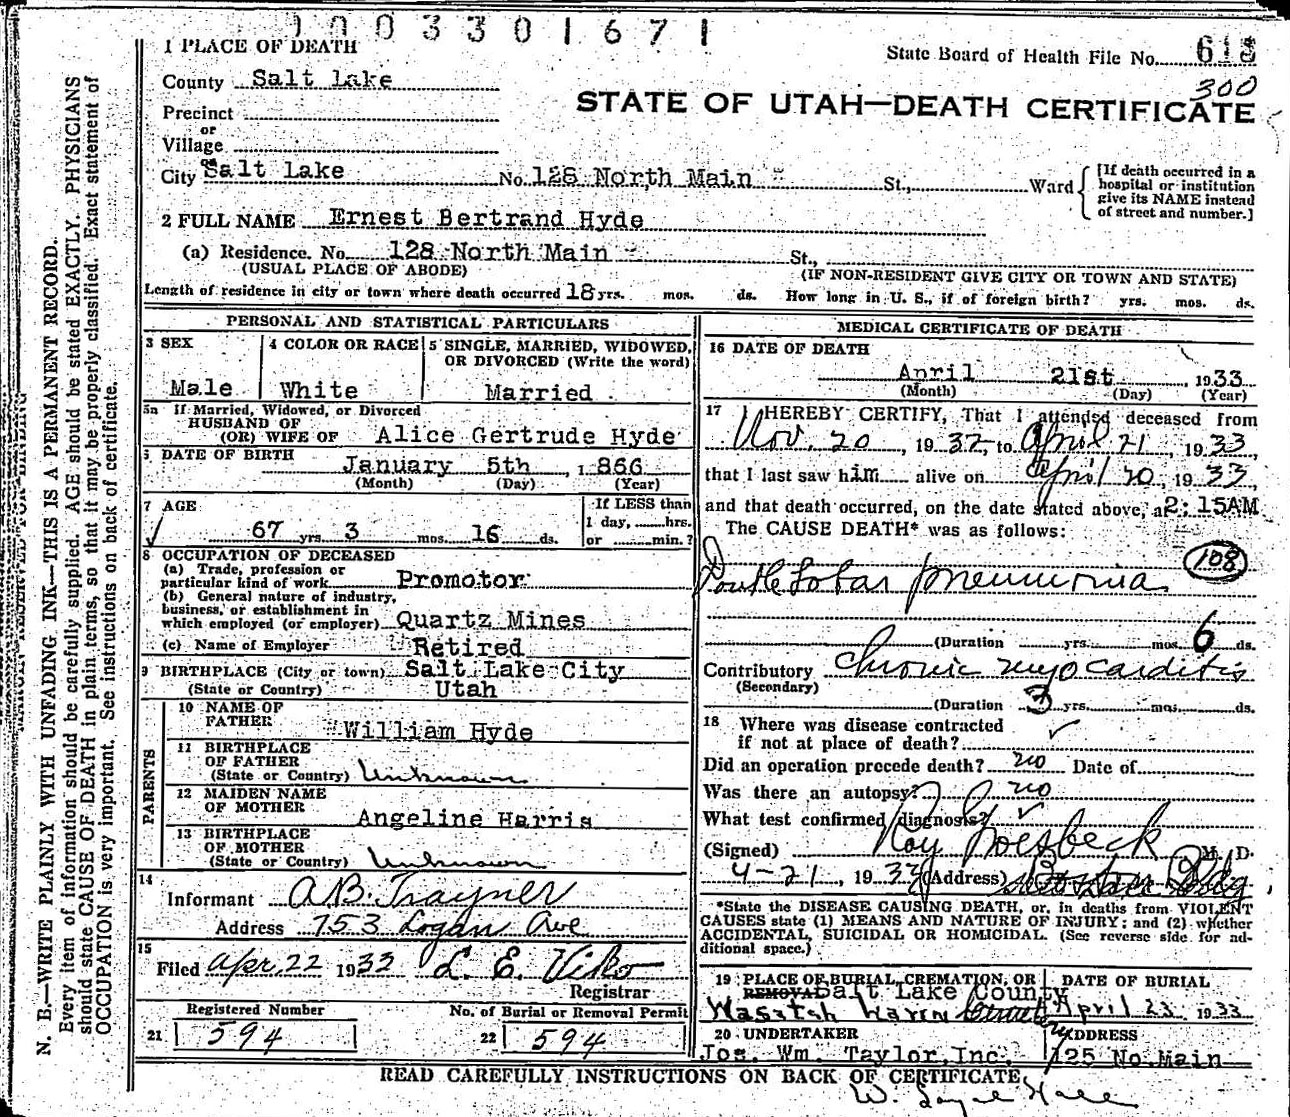 1003301671
State Board of Health File No. 618
300
STATE OF UTAH—DEATH CERTIFICATE
1 PLACE OF DEATH
County Salt Lake
Precinct
or
Village
or
City Salt Lake No. 128 North Main St., Ward
[If death occurred in a hospital or institution give its NAME instead of street and number.]
2 FULL NAME Ernest Bertrand Hyde
(a) Residence. No. 128 North Main St.,
(USUAL PLACE OF ABODE) (IF NON-RESIDENT GIVE CITY OR TOWN AND STATE)
Length of residence in city or town where death occurred 18 yrs. mos. ds. How long in U. S., if of foreign birth? yrs. mos. ds.
PERSONAL AND STATISTICAL PARTICULARS
3 SEX
Male
4 COLOR OR RACE
White
5 SINGLE, MARRIED, WIDOWED,
OR DIVORCED (Write the word)
Married
5a If Married, Widowed, or Divorced
HUSBAND OF
(OR) WIFE OF Alice Gertrude Hyde
6 DATE OF BIRTH
January 5th, 1866
(Month) (Day) (Year)
7 AGE
67 yrs. 3 mos. 16 ds.
If LESS than
1 day, hrs.
or min.?
8 OCCUPATION OF DECEASED
(a) Trade, profession or
particular kind of work Promotor
(b) General nature of industry,
business, or establishment in
which employed (or employer) Quartz Mines
(c) Name of Employer Retired
9 BIRTHPLACE (City or town) Salt Lake City
(State or Country) Utah
PARENTS
10 NAME OF
FATHER William Hyde
11 BIRTHPLACE
OF FATHER
(State or Country) Unknown
12 MAIDEN NAME
OF MOTHER Angeline Harris
13 BIRTHPLACE
OF MOTHER
(State or Country) Unknown
14
Informant A.B. Trayner
Address 753 Logan Ave
15
Filed Apr. 22 1933 L. E. Viko
Registrar
Registered Number
21 594
No. of Burial or Removal Permit
22 594
MEDICAL CERTIFICATE OF DEATH
16 DATE OF DEATH
April 21st, 1933
(Month) (Day) (Year)
17 I HEREBY CERTIFY, That I attended deceased from
Nov. 20, 1932, to April 21, 1933
that I last saw him alive on April 20, 1933,
and that death occurred, on the date stated above, at 2:15AM
The CAUSE DEATH* was as follows:
108
Double Lobar pneumonia
(Duration yrs. mos. 6 ds.
Contributory Chronic myocarditis
(Secondary)
(Duration 3 yrs. mos. ds.
18 Where was disease contracted
if not at place of death?
Did an operation precede death? no Date of
Was there an autopsy? no
What test confirmed diagnosis?
(Signed) Roy Groesbeck M. D.
4-21, 1933 (Address) Boston Bldg.
*State the DISEASE CAUSING DEATH, or, in deaths from VIOLENT
CAUSES state (1) MEANS AND NATURE OF INJURY; and (2) whether
ACCIDENTAL, SUICIDAL OR HOMICIDAL. (See reverse side for ad-
ditional space.)
19 PLACE OF BURIAL, CREMATION, OR
REMOVAL Salt Lake County
Wasatch Lawn Cemetery
DATE OF BURIAL
April 23 1933
20 UNDERTAKER
Jos. Wm. Taylor, Inc.
ADDRESS
125 No. Main
READ CAREFULLY INSTRUCTIONS ON BACK OF CERTIFICATE
N. B.—WRITE PLAINLY WITH UNFADING INK—THIS IS A PERMANENT RECORD.
Every item of information should be carefully supplied. AGE should be stated EXACTLY. PHYSICIANS
should state CAUSE OF DEATH in plain terms, so that it may be properly classified. Exact statement of
OCCUPATION is very important. See instructions on back of certificate.